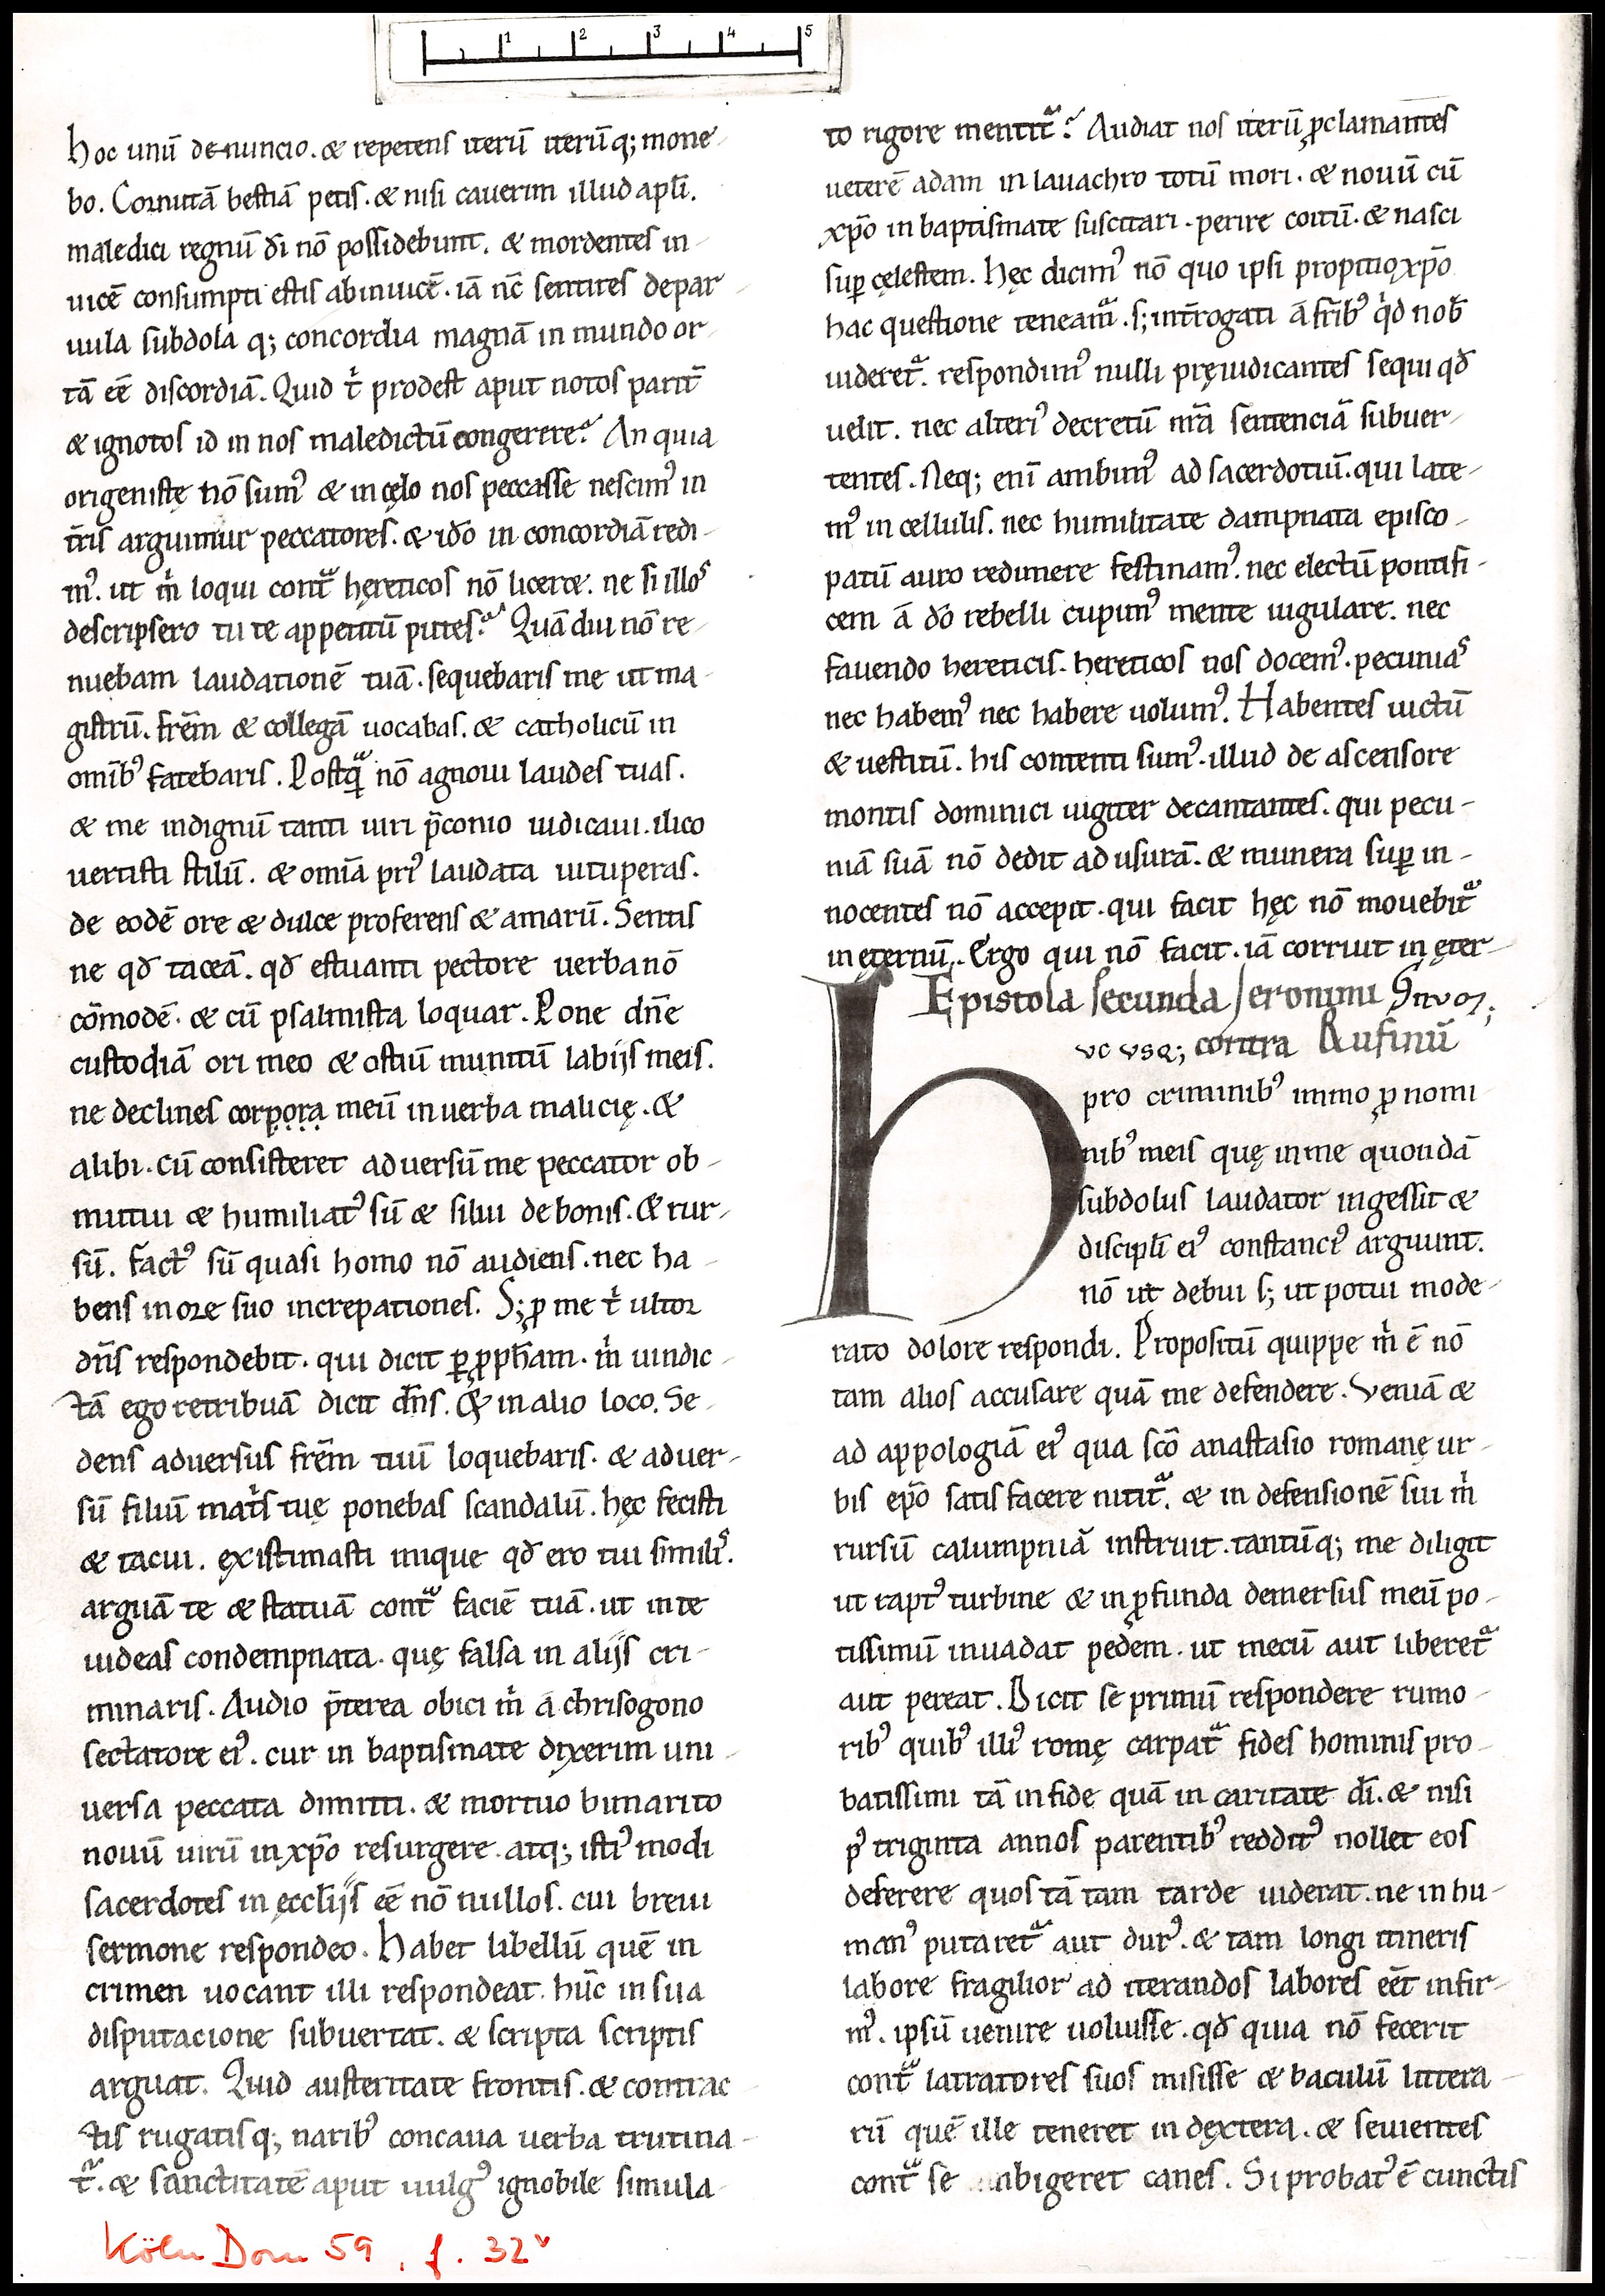 1 2 3 4 5
hoc unū denuncio. & repetens iterū iterūq; mone-
bo. Cornutā bestiā petis. & nisi cauerim illud apl̄i.
maledici regnū dī nō possidebunt. & mordentes in-
uicē consumpti estis abinuicē. iā nc̄ sentires depar-
uula subdola q; concordia magnā in mundo or-
tā eē discordiā. Quid t̄ prodest aput notos parit̄
& ignotos id in nos maledictū congerere? An quia
origenistę nō sumꝰ & in cęlo nos peccasse nescimꝰ in
tr̄is arguimur peccatores. & id̄o in concordiā redi-
mꝰ. ut m̄ loqui contͣ hęreticos nō licere. ne si illoˢ
descripsero tu te appetitū putes? Quādiu nō re-
nuebam laudationē tuā. sequebaris me ut ma-
gistrū. fr̄em & collegā uocabas. & catholicū in
omībꝰ fatebaris. Postqͣ nō agnoui laudes tuas.
& me indignū tanti uiri p̄conio iudicaui. ilico
uertisti stilū. & omīa priꝰ laudata uituperas.
de eodē ore & dulce proferens & amarū. Sentis
ne qđ taceā. qđ estuanti pectore uerba nō
cōmodē. & cū psalmista loquar. Pone dn̄e
custodiā ori meo & ostiū munitū labijs meis.
ne declines corpora meū in uerba malicię. &
alibi. Cū consisteret aduersū me peccator ob-
mutui & humiliatꝰ sū & silui de bonis. & rur-
sū. Factꝰ sū quasi homo nō audiens. nec ha-
bens in ore suo increpationes. S; ꝓ me t̄ ultor
dn̄s respondebit. qui dicit ꝑ ꝓph̄am. m̄ uindic-
tā ego retribuā dicit dn̄s. & in alio loco. Se-
dens aduersus fr̄em tuū loquebaris. & aduer-
sū filiū matr̄s tuę ponebas scandalū. hęc fecisti
& tacui. existimasti inique qđ ero tui similiˢ.
arguā te & statuā contͣ faciē tuā. ut in te
uideas condempnata. quę falsa in alijs cri-
minaris. Audio p̄terea obici m̄ ā chrisogono
sectatore eiꝰ. cur in baptismate dixerim uni-
uersa peccata dimitti. & mortuo bimarito
nouū uirū in xp̄o resurgere. atq; istiꝰ modi
sacerdotes in ęccl̄ijs eē nō nullos. cui breui
sermone respondeo. Habet libellū quē in
crimen uocant illi respondeat. hūc in sua
disputacione subuertat. & scripta scriptis
arguat. Quid austeritate frontis. & contrac-
tis rugatisq; naribꝰ concaua uerba trutina-
tͣ. & sanctitatē aput uulgꝰ ignobile simula-
to rigore mentitͣ? Audiat nos iterū ꝓclamantes
ueterē adam in lauachro totū mori. & nouū cū
xp̄o in baptismate suscitari. perire coitū. & nasci
suꝑ cęlestem. Hęc dicimꝰ nō quo ipsi propitio xp̄o
hac questione teneamͣ. s; intr̄ogati ā fr̄ibꝰ qͥd nob̄
uideretͣ. respondimꝰ nulli pręiudicantes sequi qđ
uelit. nec alteriꝰ decretū nr̄ā sentenciā subuer-
tentes. Neq; enī ambimꝰ ad sacerdotiū. qui late-
mꝰ in cellulis. nec humilitate dampnata episco-
patū auro redimere festinamꝰ. nec electū pontifi-
cem ā dō rebelli cupimꝰ mente iugulare. nec
fauendo hereticis. hereticos nos docemꝰ. pecuniaˢ
nec habemꝰ nec habere uolumꝰ. Habentes uictū
& uestitū. his contenti sumꝰ. illud de ascensore
montis dominici iugiter decantantes. qui pecu-
niā suā nō dedit ad usurā. & munera suꝑ in-
nocentes nō accepit. qui facit hęc nō mouebitͣ
in ęternū. Ergo qui nō facit. iā corruit in ęter-
Epistola secunda Ieronimi nuoꝝ;
contra Rufinū
Huc vsq; pro criminibꝰ immo ꝓ nomi
nibꝰ meis quę in me quondā
subdolus laudator ingessit &
discipl̄i eiꝰ constanciꝰ arguunt.
nō ut debui s; ut potui mode-
rato dolore respondi. Propositū quippe m̄ ē nō
tam alios accusare quā me defendere. Veniā &
ad appologiā eiꝰ qua sc̄o anastasio romanę ur-
bis ep̄o satis facere nititͣ. & in defensionē sui m̄
rursū calumpniā instruit. tantūq; me diligit
ut raptꝰ turbine & in ꝓfunda demersus meū po-
tissimū inuadat pedem. ut mecū aut liberetͣ
aut pereat. Dicit se primū respondere rumo-
ribꝰ quibꝰ illiꝰ romę carpatͣ fides hominis pro-
batissimi tā in fide quā in caritate dī. & nisi
pꝰ triginta annos parentibꝰ redditꝰ nollet eos
deferere quos tā tam tarde uiderat. ne in hu-
manꝰ putaretͣ aut durꝰ. & tam longi itineris
labore fragilior ad iterandos labores eēt infir-
mꝰ. ipsū uenire uoluisse. qđ quia nō fecerit
contͣ latratores suos misisse & baculū littera-
rū quē ille teneret in dextera. & seuientes
contͣ se abigeret canes. Si probatꝰ ē cunctis
Köln Dom 59, f. 32ᵛ